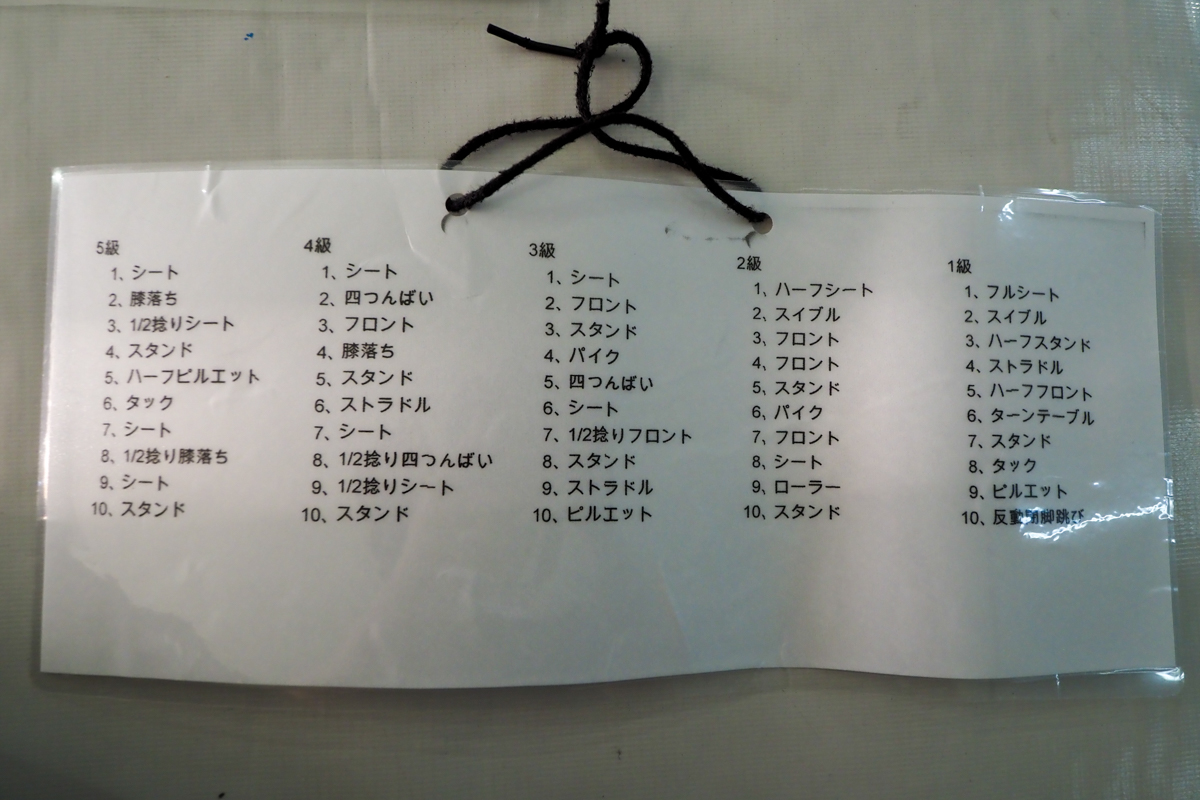 5級
1、シート
2、膝落ち
3、1/2捻りシート
4、スタンド
5、ハーフピルエット
6、タック
7、シート
8、1/2捻り膝落ち
9、シート
10、スタンド
4級
1、シート
2、四つんばい
3、フロント
4、膝落ち
5、スタンド
6、ストラドル
7、シート
8、1/2捻り四つんばい
9、1/2捻りシート
10、スタンド
3級
1、シート
2、フロント
3、スタンド
4、パイク
5、四つんばい
6、シート
7、1/2捻りフロント
8、スタンド
9、ストラドル
10、ピルエット
2級
1、ハーフシート
2、スイブル
3、フロント
4、フロント
5、スタンド
6、パイク
7、フロント
8、シート
9、ローラー
10、スタンド
1級
1、フルシート
2、スイブル
3、ハーフスタンド
4、ストラドル
5、ハーフフロント
6、ターンテーブル
7、スタンド
8、タック
9、ピルエット
10、反動閉脚跳び